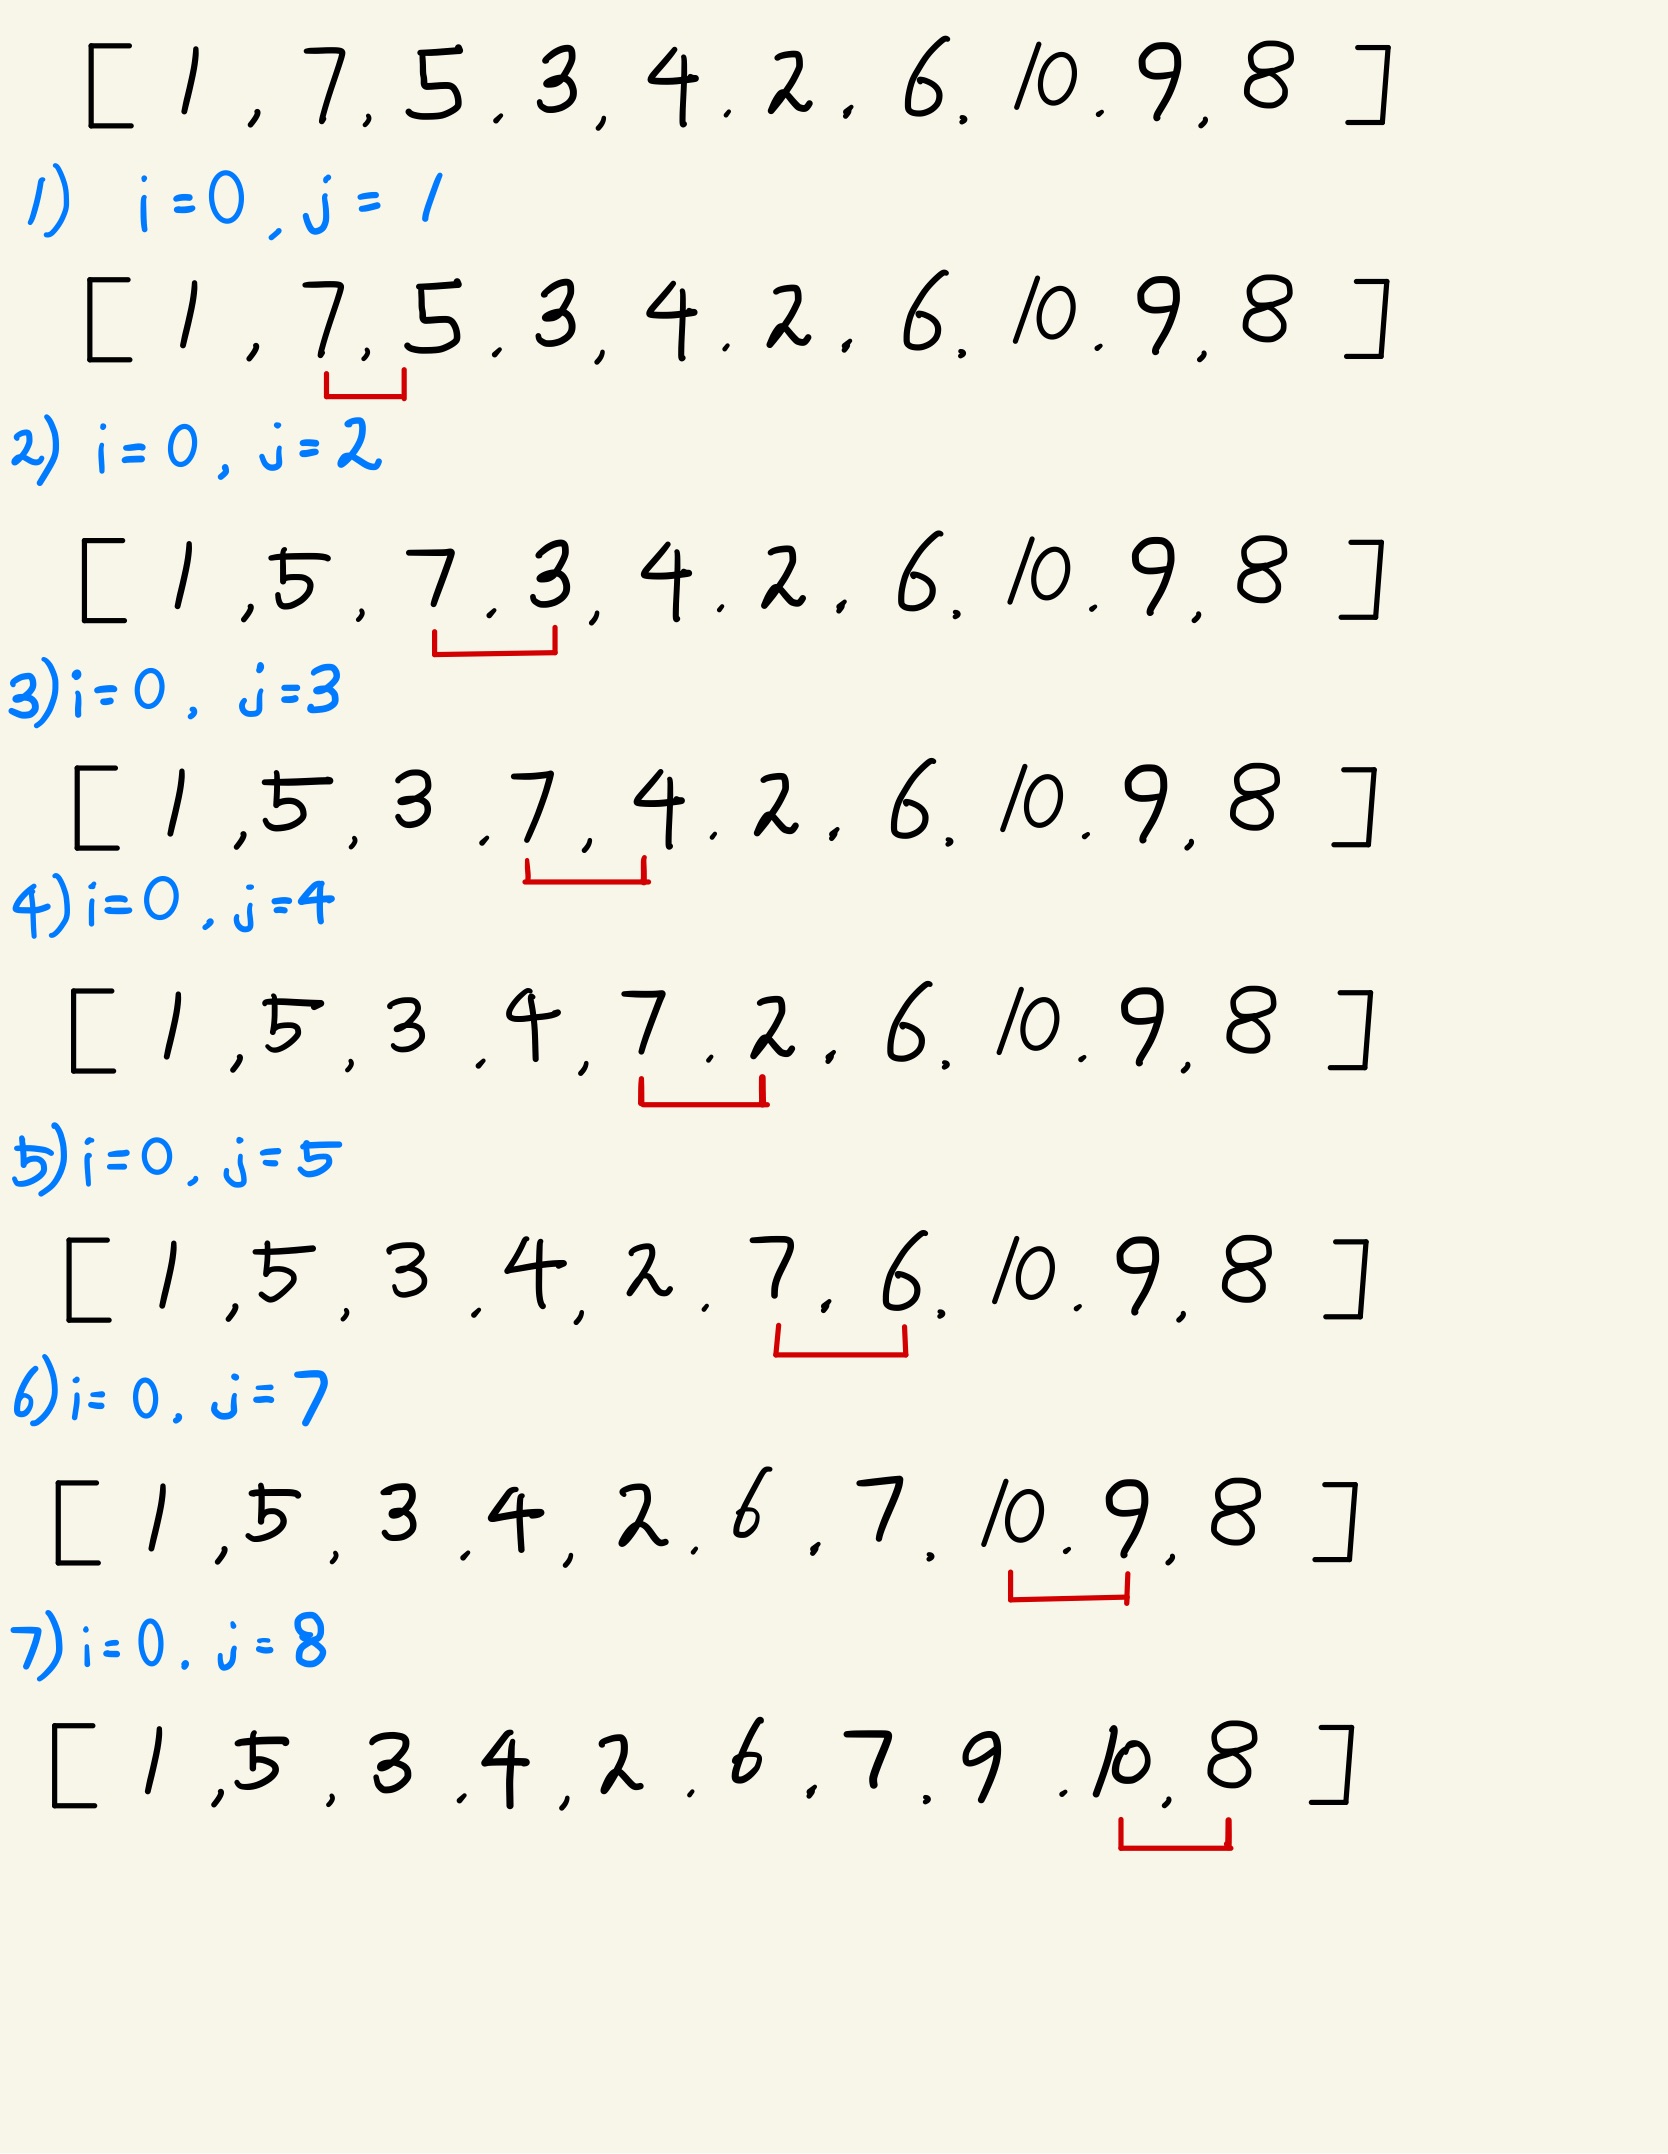 [ 1 , 7 , 5 , 3 , 4 , 2 , 6 , 10 , 9 , 8 ]
1) i = 0 , j = 1
[ 1 , 7 , 5 , 3 , 4 , 2 , 6 , 10 , 9 , 8 ]
2) i = 0 , j = 2
[ 1 , 5 , 7 , 3 , 4 , 2 , 6 , 10 , 9 , 8 ]
3) i = 0 , j = 3
[ 1 , 5 , 3 , 7 , 4 , 2 , 6 , 10 , 9 , 8 ]
4) i = 0 , j = 4
[ 1 , 5 , 3 , 4 , 7 , 2 , 6 , 10 , 9 , 8 ]
5) i = 0 , j = 5
[ 1 , 5 , 3 , 4 , 2 , 7 , 6 , 10 , 9 , 8 ]
6) i = 0 , j = 7
[ 1 , 5 , 3 , 4 , 2 , 6 , 7 , 10 , 9 , 8 ]
7) i = 0 , j = 8
[ 1 , 5 , 3 , 4 , 2 , 6 , 7 , 9 , 10 , 8 ]